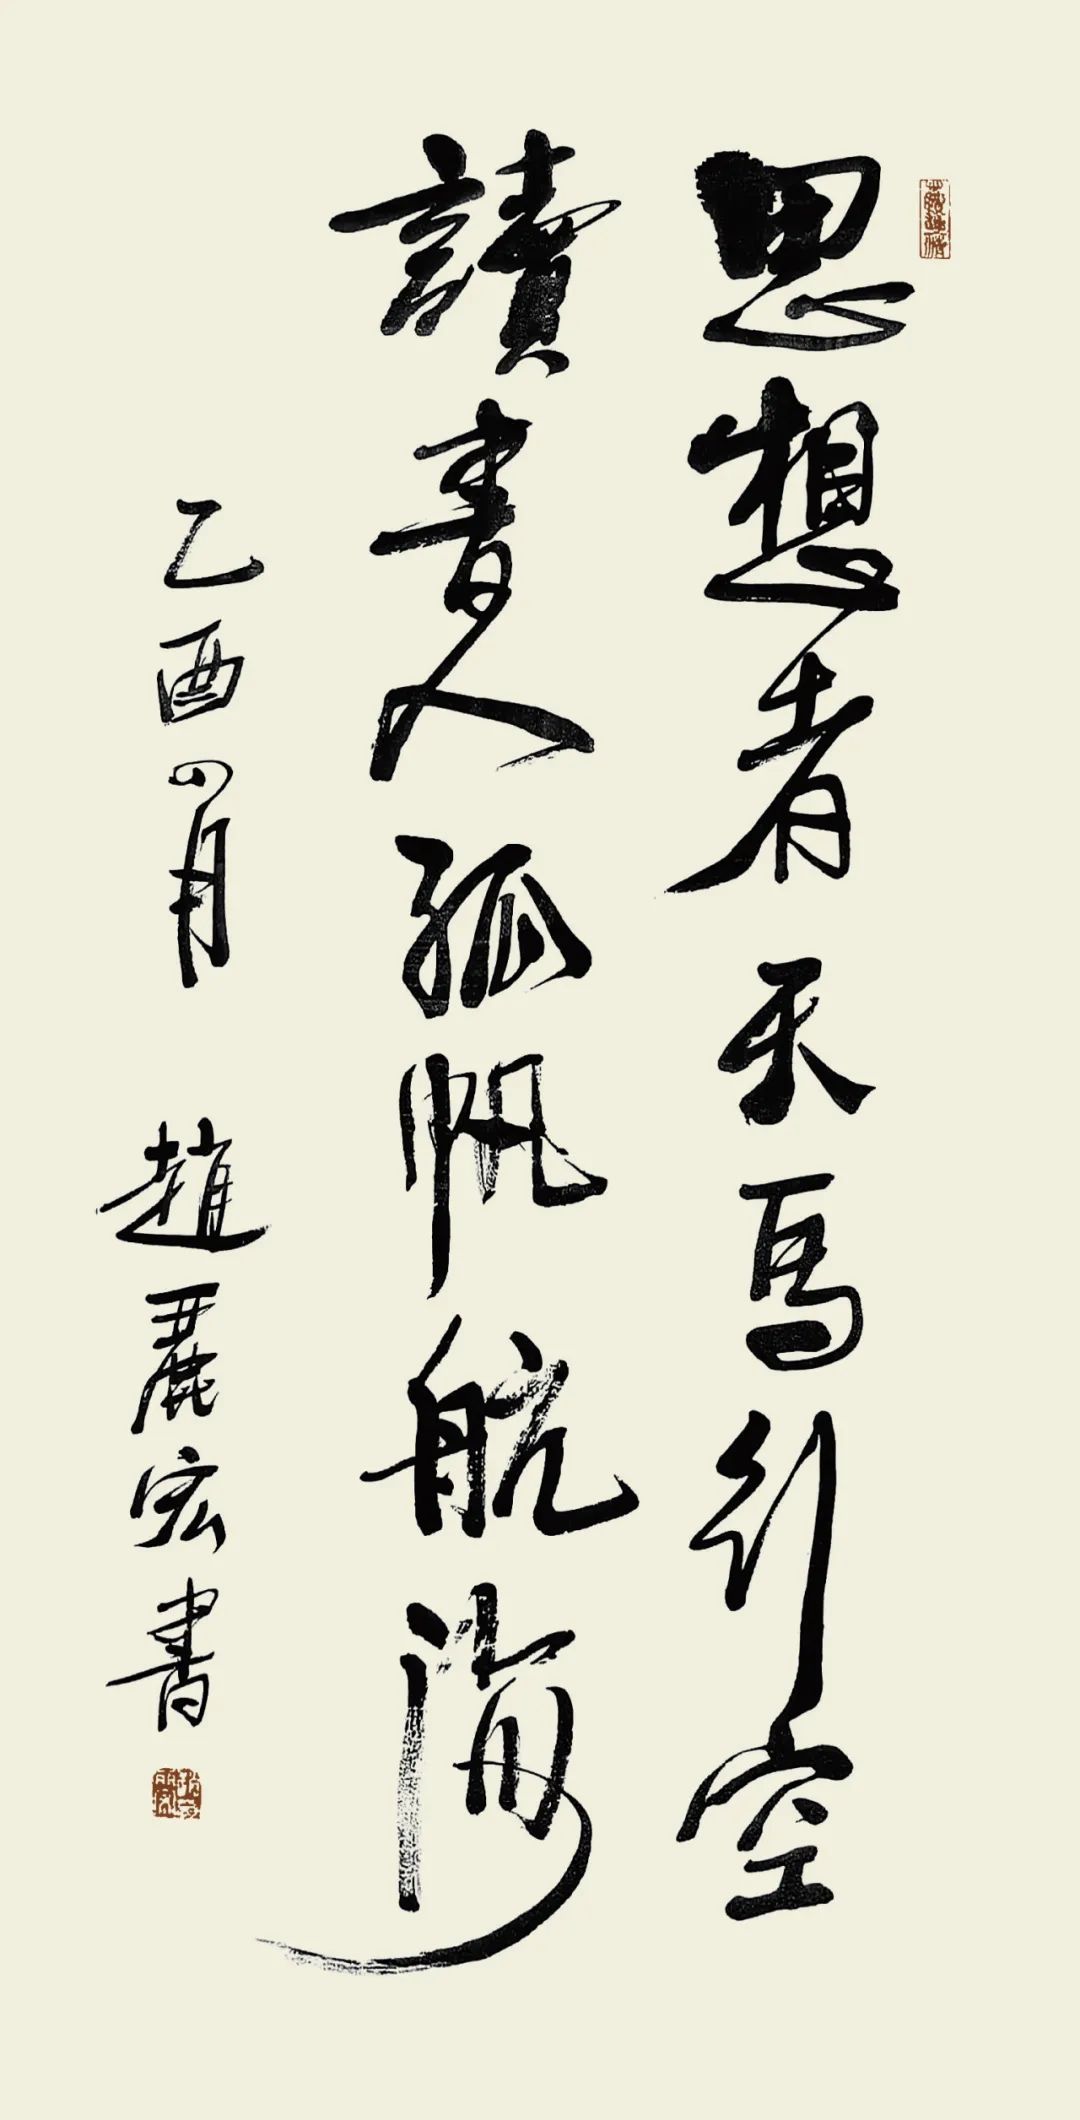 思想者天馬行空
讀書人孤帆航海
乙酉四月 趙麗宏書